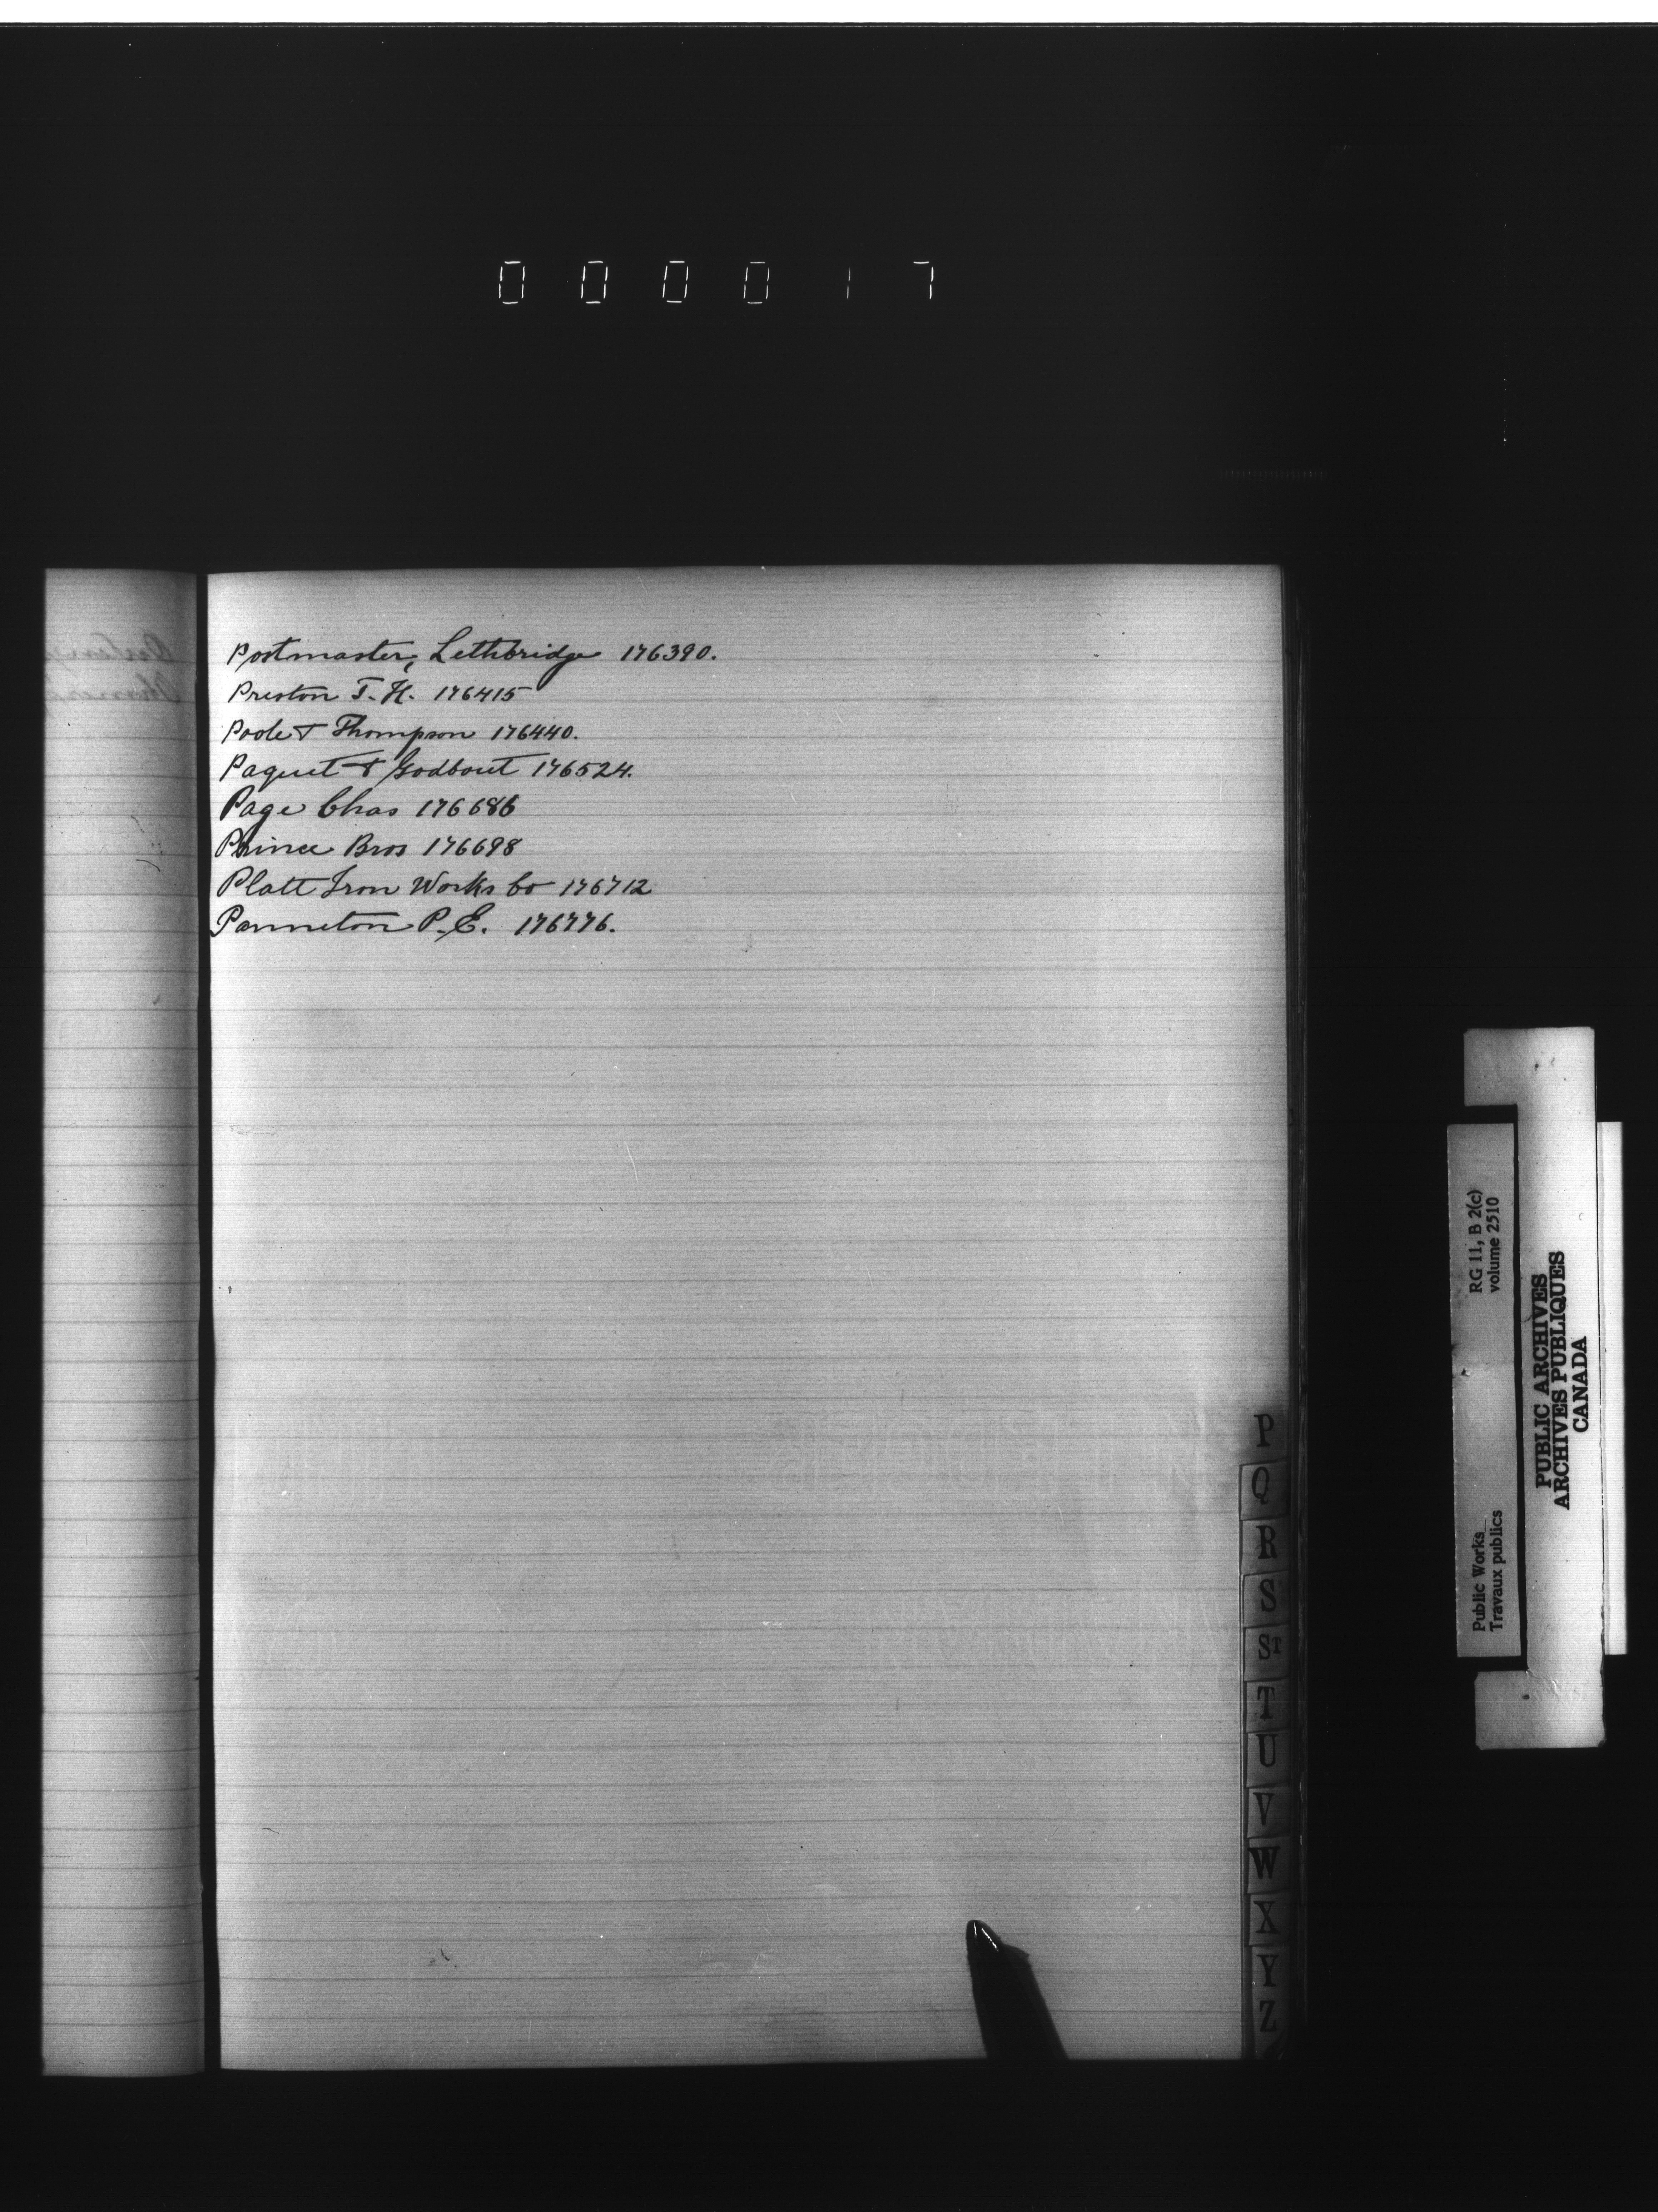 000017
Postmaster, Lethbridge 176390.
Preston T. H. 176415
Poole & Thompson 176440.
Paquet & Godbout 176524.
Page Chas 176686
Prince Bros 176698
Platt Iron Works Co 176712
Panneton P. E. 176776.
P
Q
R
S
ST
T
U
V
W
X
Y
Z
Public Works
Travaux publics
RG 11, B 2(c)
volume 2510
PUBLIC ARCHIVES
ARCHIVES PUBLIQUES
CANADA